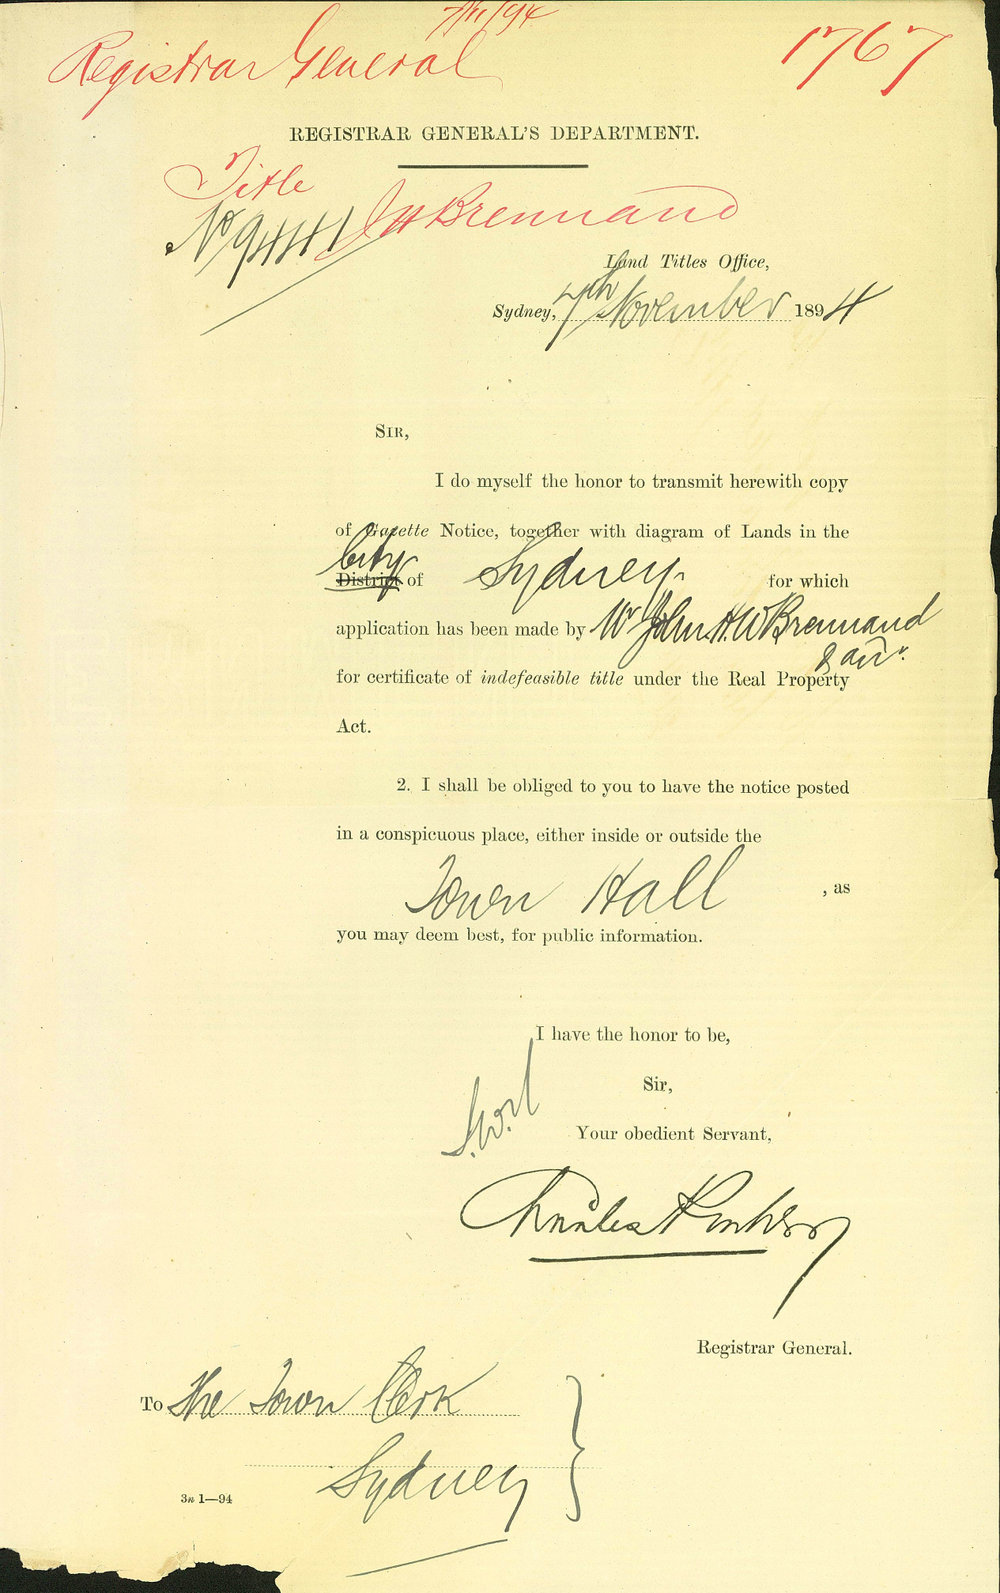 7/11/94
Registrar General
1767
REGISTRAR GENERAL'S DEPARTMENT.
Title
No 9441 J H Brennand
Land Titles Office,
Sydney, 7th November 1894
SIR,
I do myself the honor to transmit herewith copy
of Gazette Notice, together with diagram of Lands in the
City
District of Sydney for which
application has been made by Mr John H. W Brennand
& anr.
for certificate of indefeasible title under the Real Property
Act.
2. I shall be obliged to you to have the notice posted
in a conspicuous place, either inside or outside the
Town Hall , as
you may deem best, for public information.
I have the honor to be,
Sir,
Your obedient Servant,
Charles
Registrar General.
To The Town Clerk
Sydney
3n 1—94